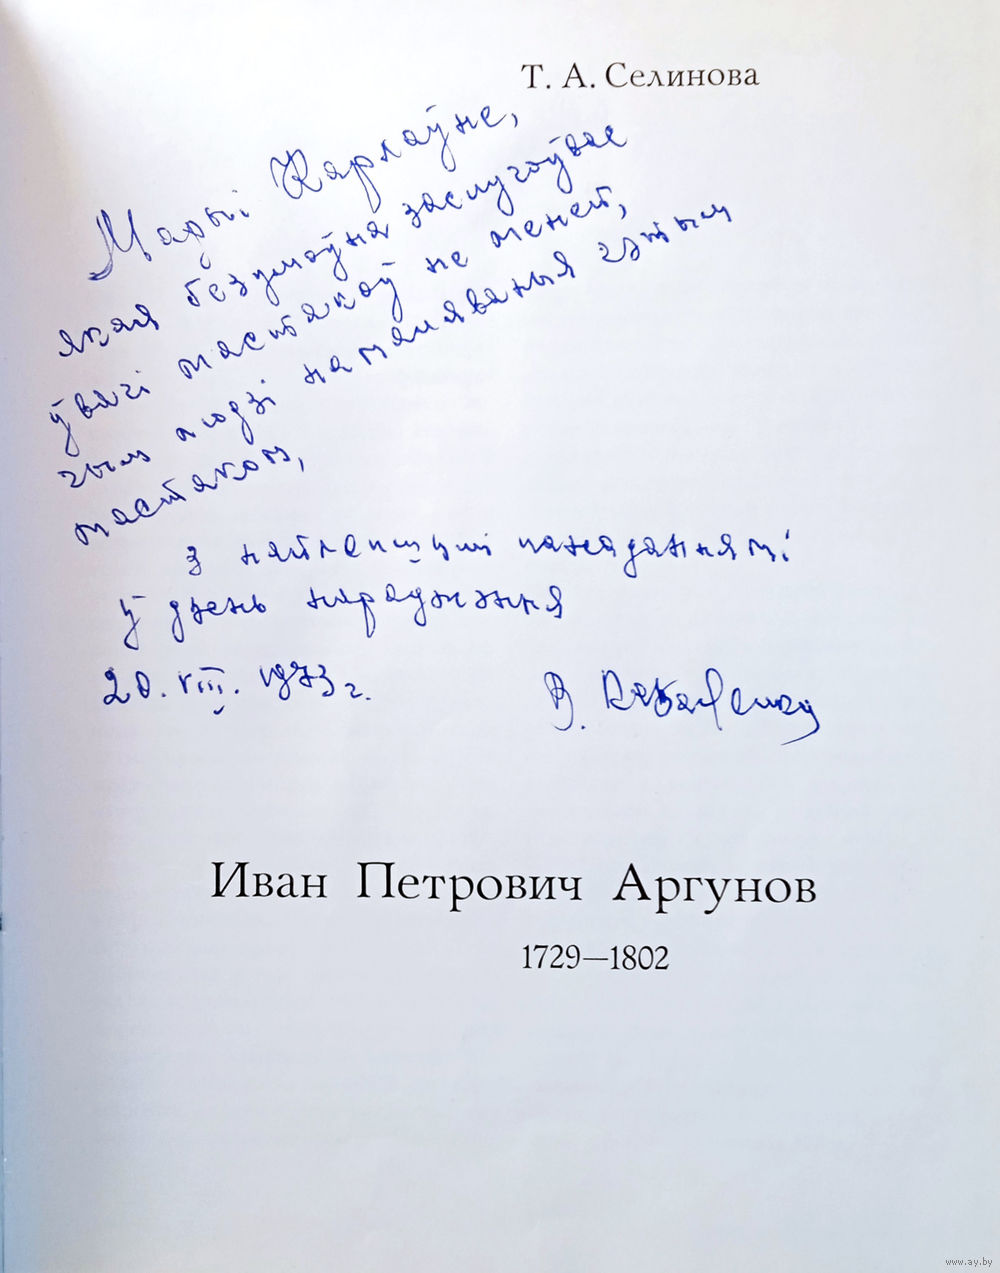 Т. А. Селинова
Марыі Карлаўне,
якая безумоўна заслугоўвае
ўвагі мастакоў не меней,
чым людзі намаляваныя гэтым
мастаком,
з найлепшымі пажаданнямі
ў дзень нараджэння
20. VIII. 1973 г.
В.
Иван Петрович Аргунов
1729—1802
www.ay.by